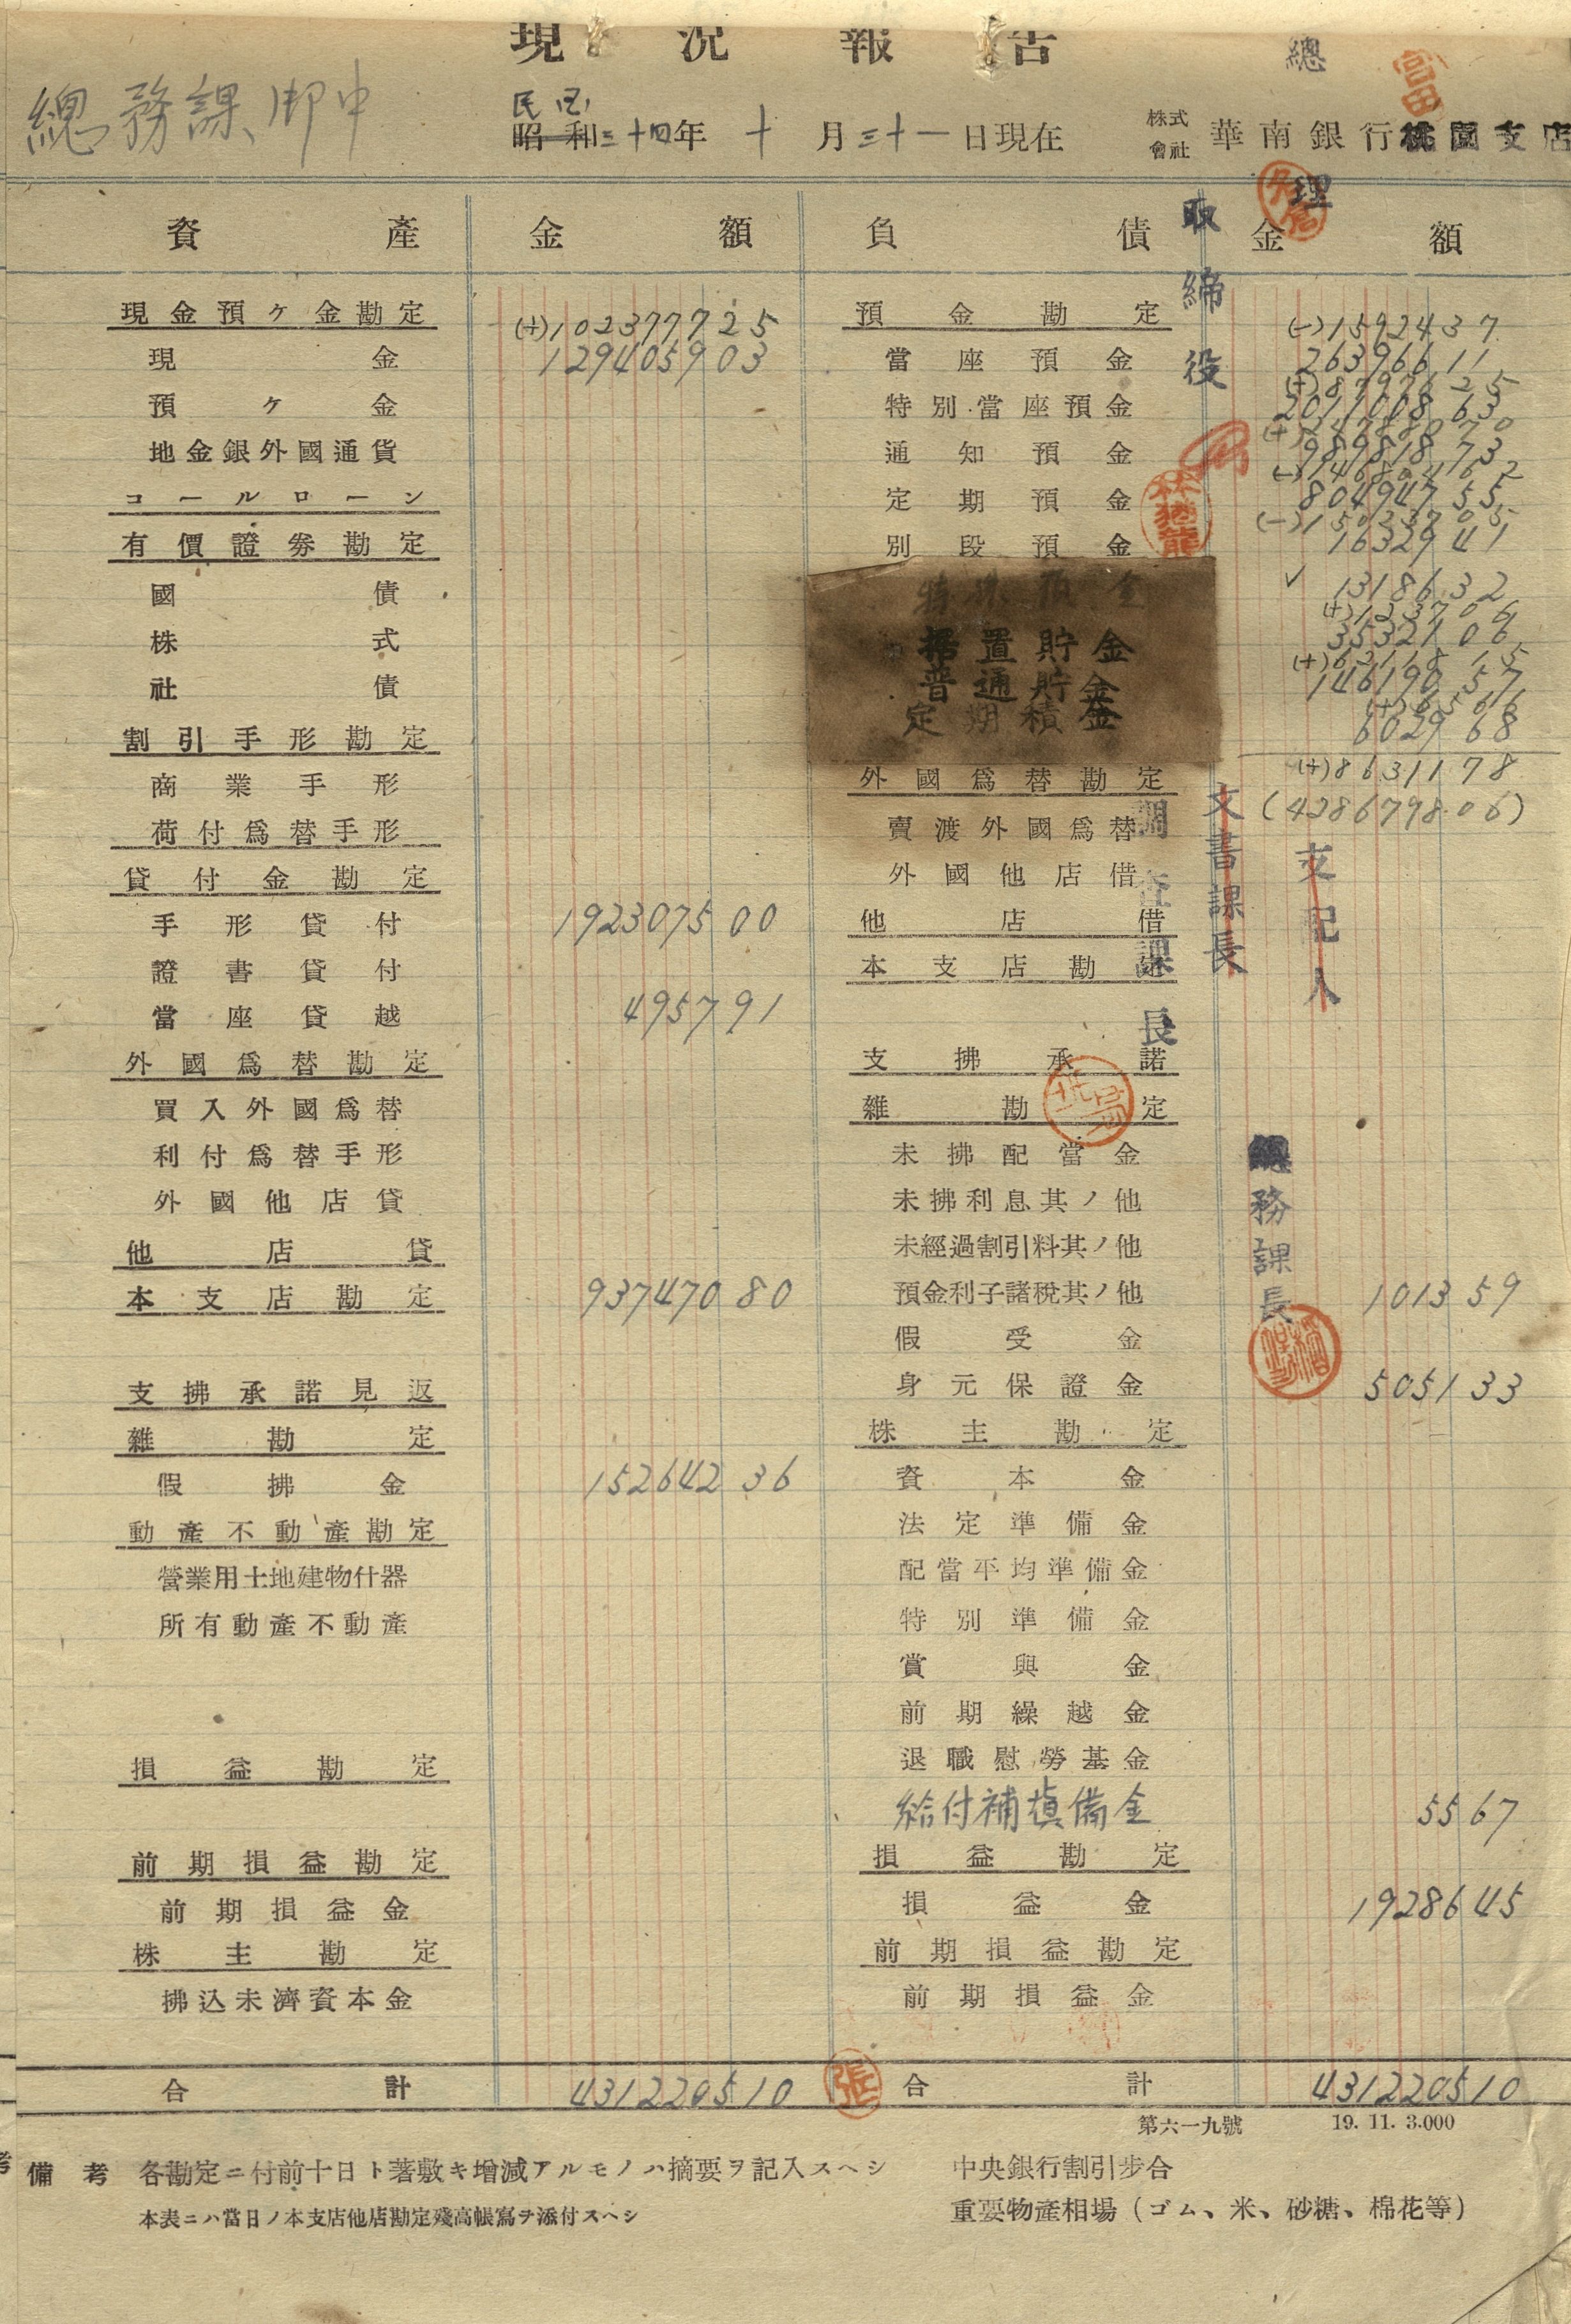 現況報告
總務課御中
民國
昭和三十四年十月三十一日現在
株式會社 華南銀行桃園支店
總理
取締役
資產 金額 負債 金額
現金預ケ金勘定 (+)1023777 25
現金 1294059 03
預ケ金
地金銀外國通貨
コールローン
有價證券勘定
國債
株式
社債
割引手形勘定
商業手形
荷付爲替手形
貸付金勘定
手形貸付 1923075 00
證書貸付
當座貸越 4957 91
外國爲替勘定
買入外國爲替
利付爲替手形
外國他店貸
他店貸
本支店勘定 937470 80
支拂承諾見返
雜勘定
假拂金 152642 36
動產不動產勘定
營業用土地建物什器
所有動產不動產
損益勘定
前期損益勘定
前期損益金
株主勘定
拂込未濟資本金
合計 4312205 10
預金勘定
(-)15924 37
當座預金 263966 11
(+)87976 25
特別當座預金 2011008 63
(+)247880 70
通知預金 989818 73
(-)146804 62
定期預金 804947 55
(-)150337 05
別段預金 16329 41
特殊預金 13186 32
(+)1337 06
据置貯金 35321 06
(+)62118 15
普通貯金 146190 57
定期積金 6029 68
(+)86311 78
(4286798.06)
外國爲替勘定
賣渡外國爲替
外國他店借
他店借
本支店勘定
支拂承諾
雜勘定
未拂配當金
未拂利息其ノ他
未經過割引料其ノ他
預金利子諸稅其ノ他 1013 59
假受金
身元保證金 5051 33
株主勘定
資本金
法定準備金
配當平均準備金
特別準備金
賞與金
前期繰越金
退職慰勞基金
給付補塡備金 55 67
損益勘定
損益金 19286 45
前期損益勘定
前期損益金
合計 4312205 10
調査課長
文書課長
支配人
總務課長
林猶龍
張
第六一九號 19. 11. 3.000
備考 各勘定ニ付前十日ト著敷キ增減アルモノハ摘要ヲ記入スヘシ
本表ニハ當日ノ本支店他店勘定殘高帳寫ヲ添付スヘシ
中央銀行割引步合
重要物產相場(ゴム、米、砂糖、棉花等)